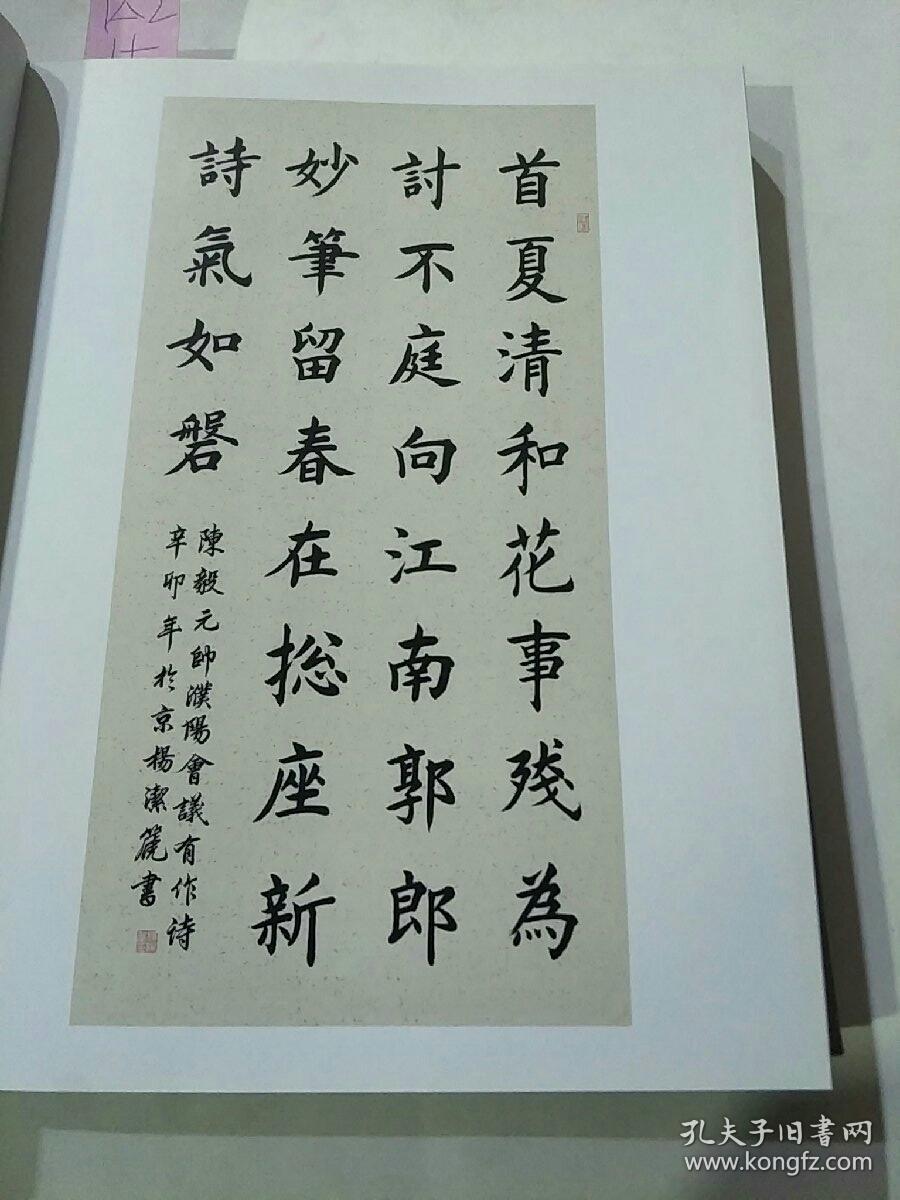 首夏清和花事残為
討不庭向江南郭郎
妙筆留春在捴座新
詩氣如磐
陳毅元帥濮陽會議有作诗
辛卯年於京楊潔篪書
孔夫子旧书网
www.kongfz.com